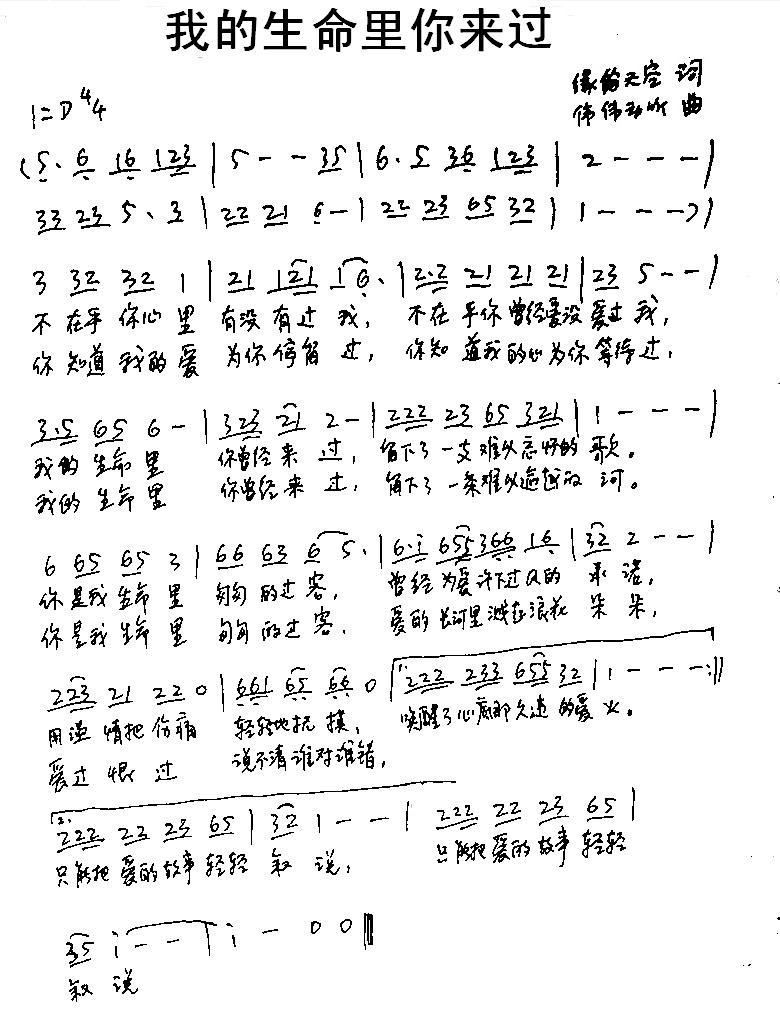 我的生命里你来过
缘的天空 词
1=D 4/4
伟伟动听 曲
(5· 6 16 123 | 5 - - 35 | 6· 5 36 123 | 2 - - - |
33 23 5· 3 | 22 21 6 - | 22 23 65 32 | 1 - - -) |
3 32 32 1 | 21 121 16· | 2·2 21 21 21 | 23 5 - - |
不在乎你心里 有没有过我, 不在乎你曾经爱没爱过我,
你知道我的爱 为你停留过, 你知道我的心为你等待过,
3·5 65 6 - | 323 21 2 - | 222 23 65 321 | 1 - - - |
我的生命里 你曾经来过, 留下了一支难以忘怀的歌。
我的生命里 你曾经来过, 留下了一条难以逾越的河。
6 65 65 3 | 66 63 6 5· | 6·i 655 366 16 | 32 2 - - |
你是我生命里 匆匆的过客, 曾经为爱许下过的承诺,
你是我生命里 匆匆的过客, 爱的长河里溅起浪花朵朵,
223 21 22 0 | 661 65 66 0 | 1. 222 233 655 32 | 1 - - - :||
用温情把伤痛 轻轻地抚摸, 唤醒了心底那久违的爱火。
爱过恨过 说不清谁对谁错,
2. 222 23 23 65 | 32 1 - - | 222 22 23 65 |
只能把爱的故事轻轻叙说, 只能把爱的故事轻轻
35 i - - | i - 0 0 ||
叙说